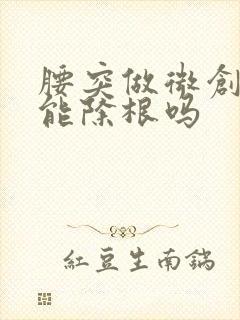 腰突做微創
能除根吗
紅豆生南鍴